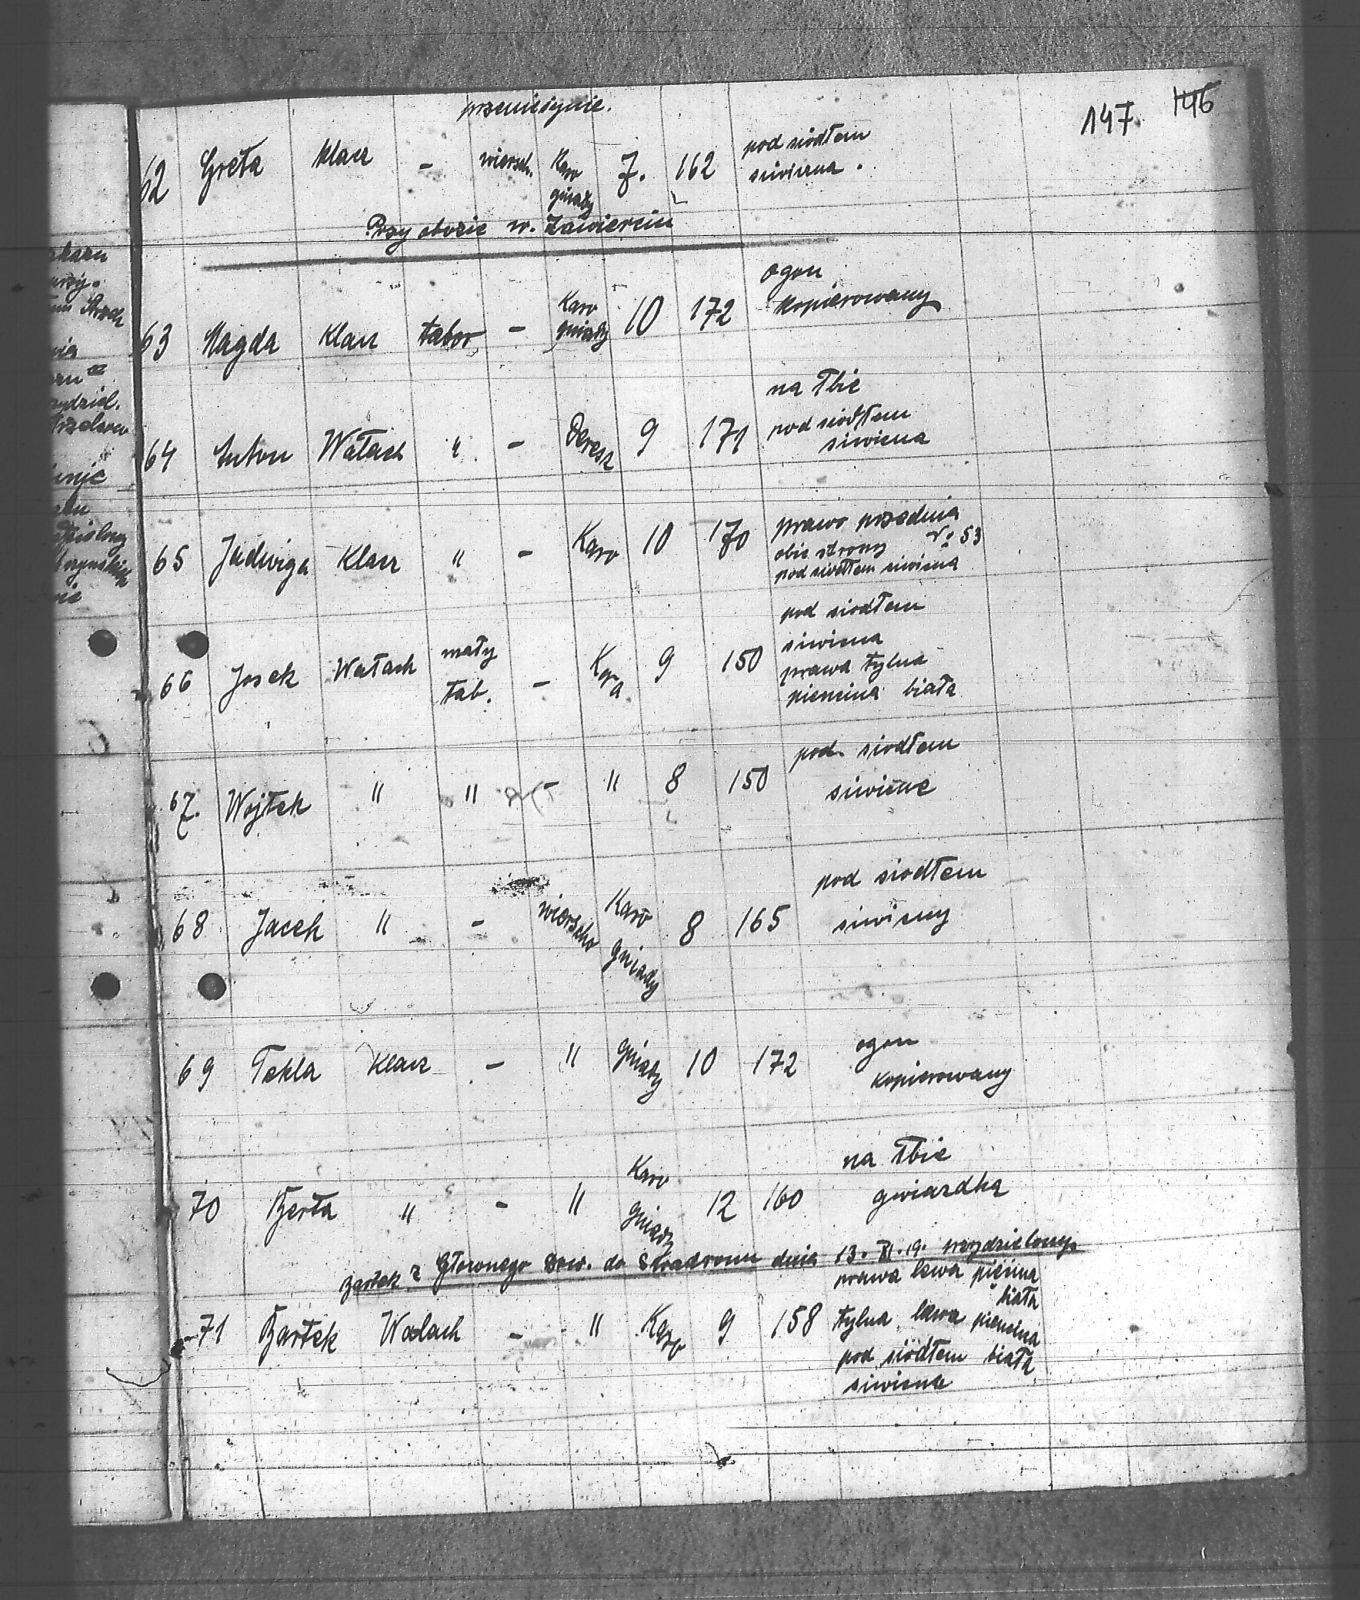 przeniesienie.
147. 146
62 Greta klacz - wiersch. Karo gniady 7. 162 pod siodłem siwizna.
Przy obozie w. Zawierciu
63 Magda Klacz tabor - Karo gniady 10 172 ogon kopierowany
64 Anton Wałach " - Deresz 9 171 na łbie pod siodłem siwizna
65 Jadwiga Klacz " - Karo 10 170 prawo
obie strony No 53
pod siodłem siwizna
66 Josek Wałach mały tab. - Kara 9 150 pod siodłem
siwizna
prawa tylna
piencina biała
67. Wojtek " " - " 8 150 pod siodłem
siwizne
68 Jacek " - wierscho Karo gniady 8 165 pod siodłem
siwizny
69 Tekla Klacz - " gniady 10 172 ogon
kopierowany
70 Berta " - " Karo gniady 12 160 na łbie
gwiazdka
Głownego Dow. do Szwadronu dnia 13. XI. 19. wydzielony.
71 Bartek Wałach - " Karo 9 158 prawa lewa
biała
tylna lewa piencina
pod siodłem biała
siwizna